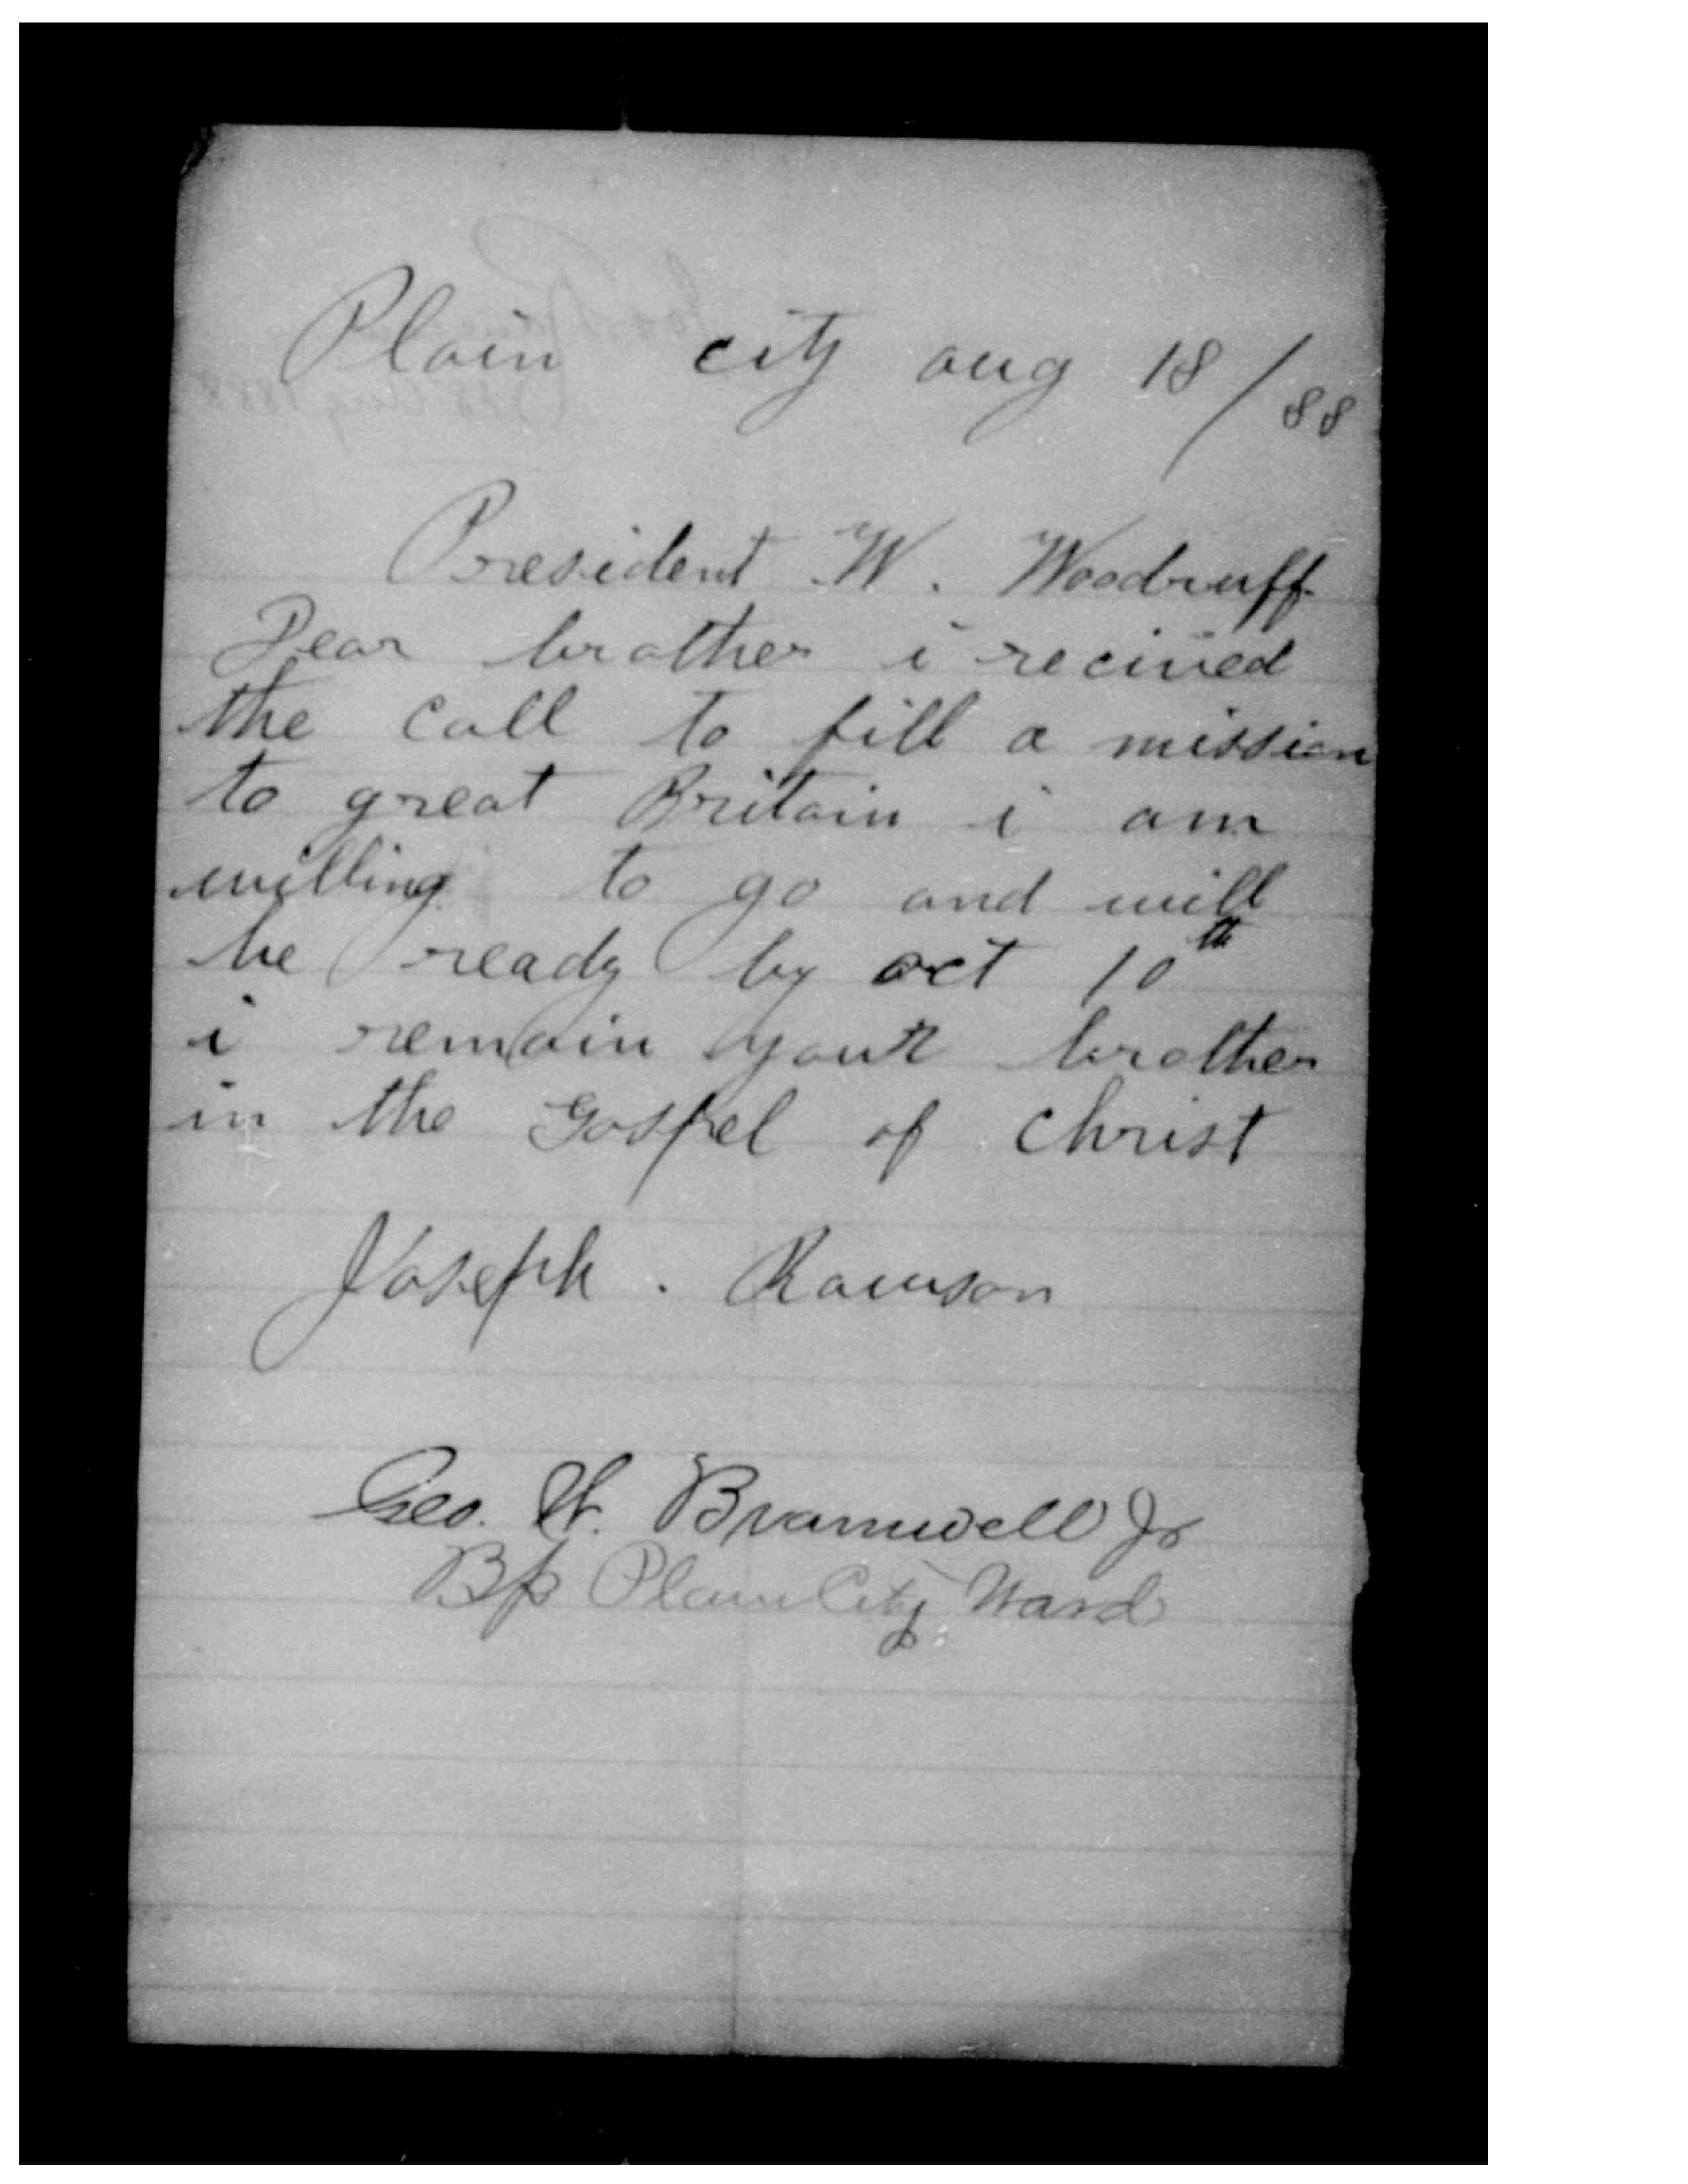 Plain city aug 18/88
President W. Woodruff
Dear brother i recived
the call to fill a mission
to great Britain i am
willing to go and will
be ready by oct 10th
i remain your brother
in the Gospel of Christ
Joseph . Rawson
Geo. W. Bramwell Jr
Bp Plain City Ward